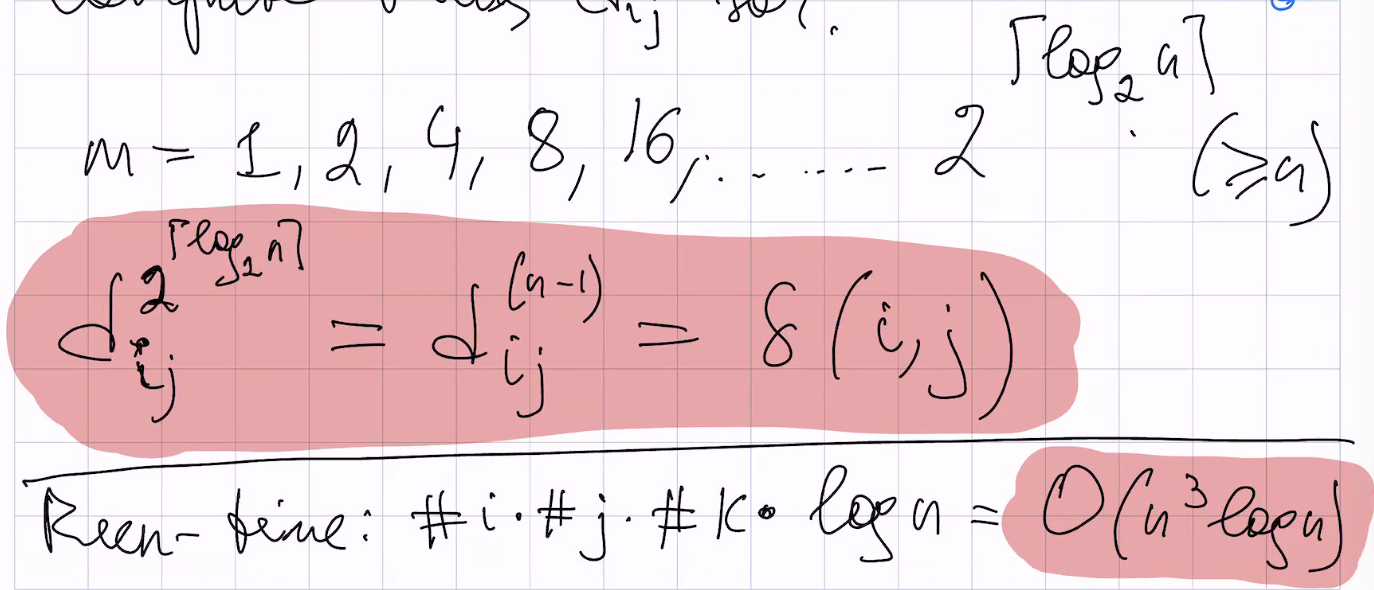 m = 1, 2, 4, 8, 16, ........ 2^⌈log₂ n⌉ (≥n)
d_ij^2^⌈log₂ n⌉ = d_ij^(n-1) = δ(i,j)
Run-time: #i · #j · #k · log n = O(n³ log n)